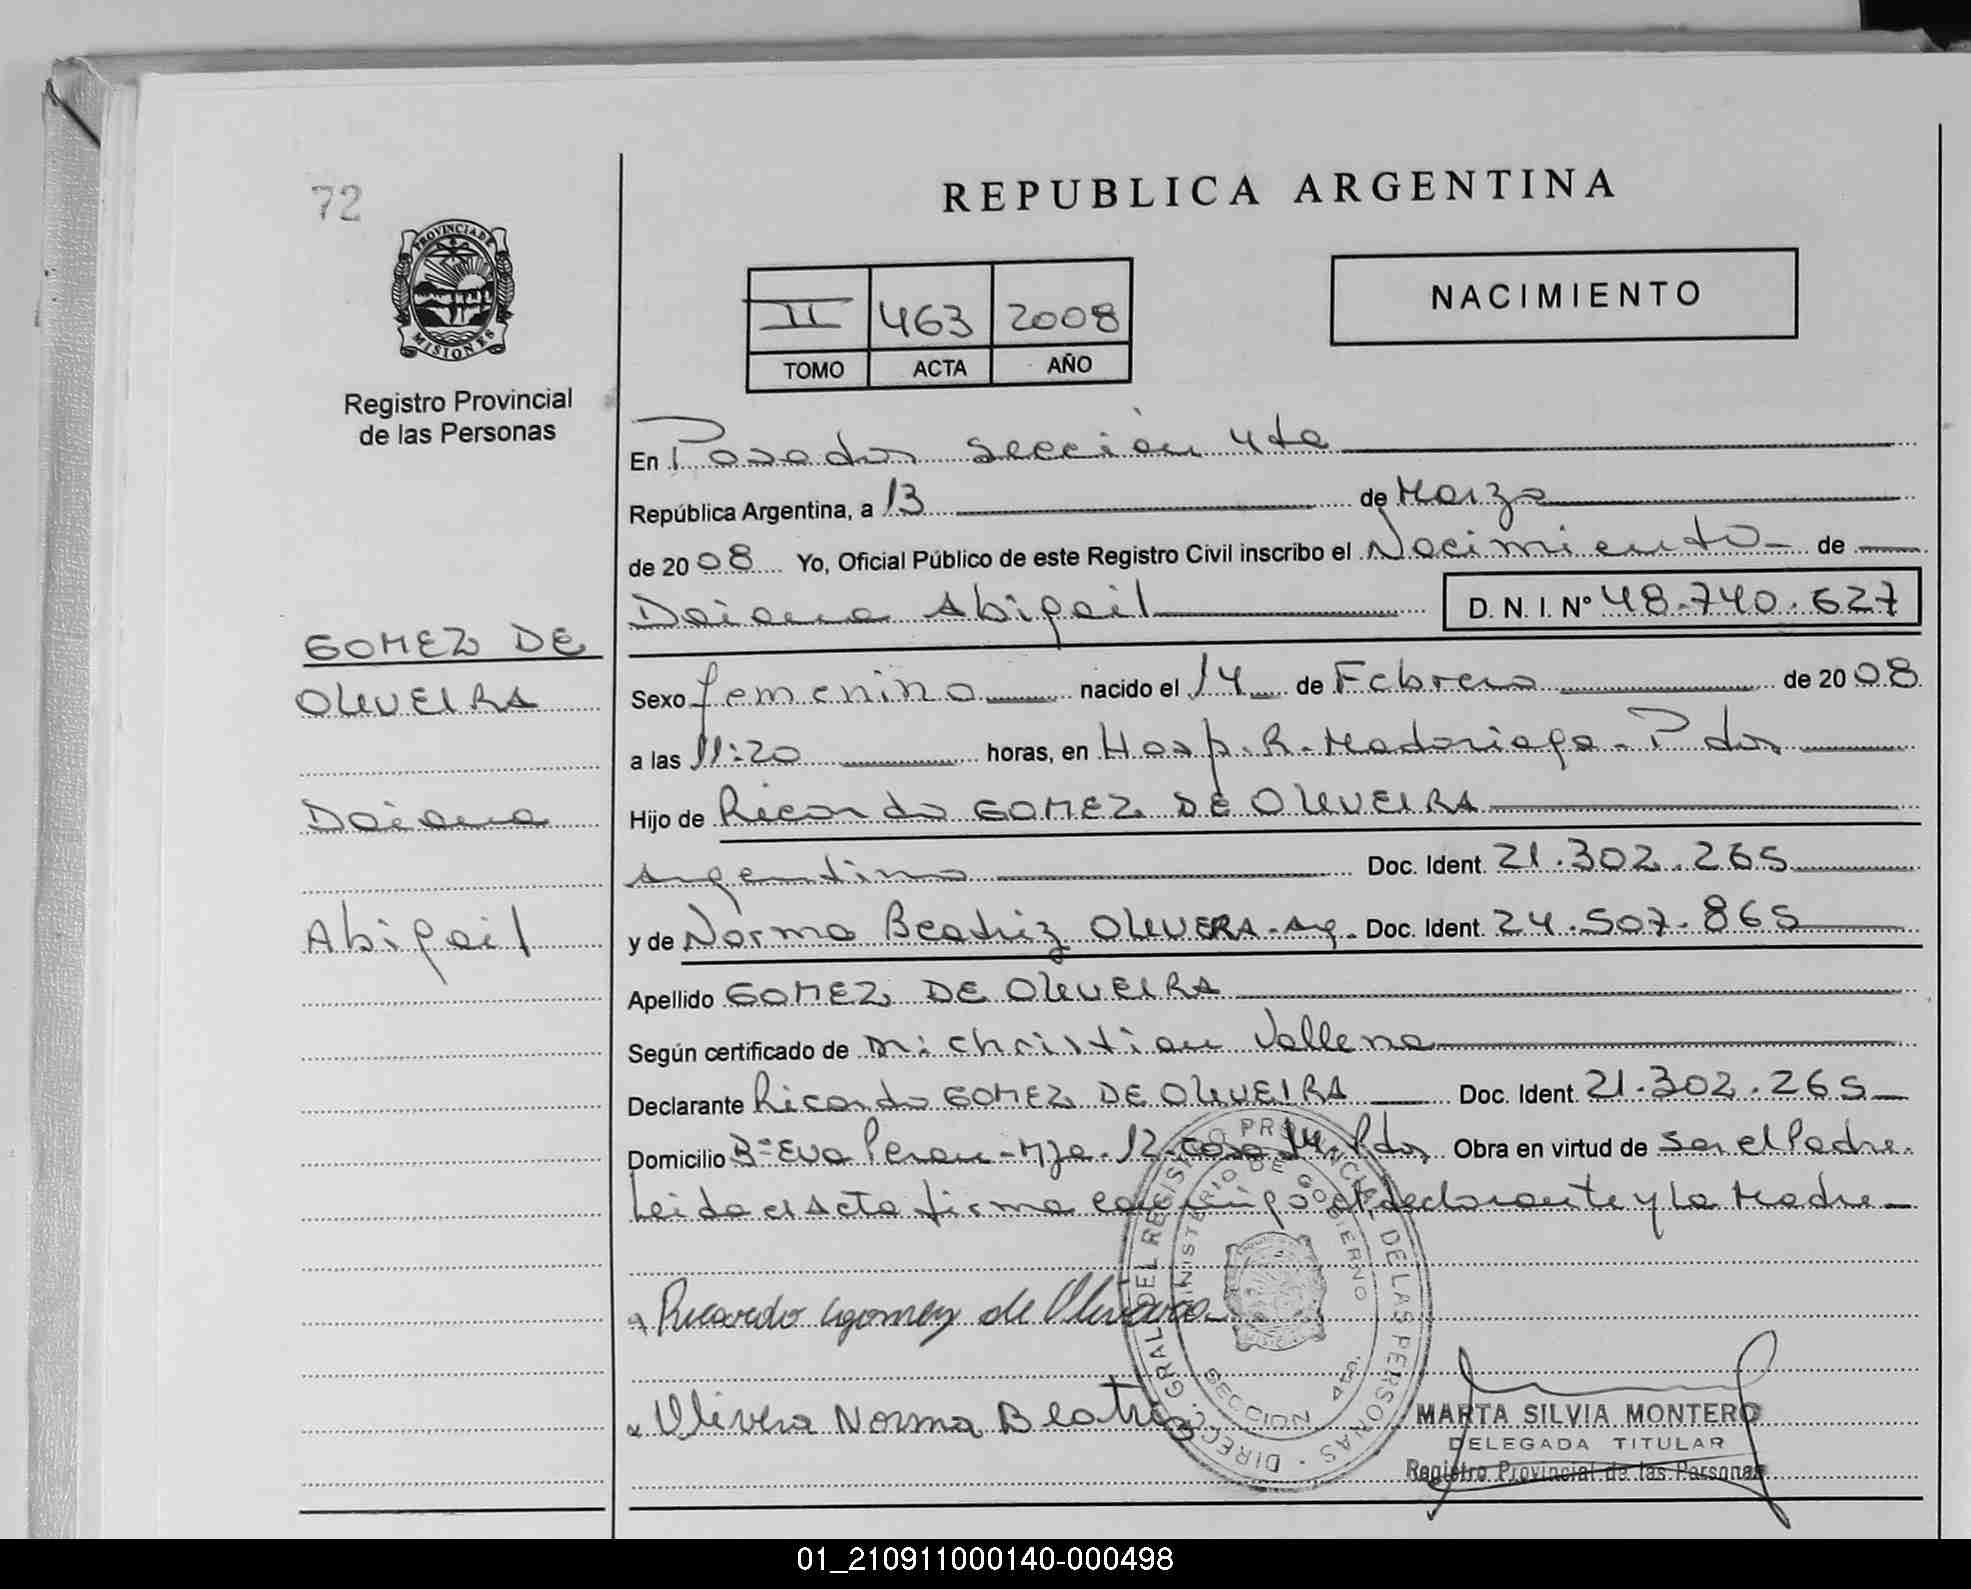 72
PROVINCIA DE
MISIONES
Registro Provincial
de las Personas
REPUBLICA ARGENTINA
NACIMIENTO
II 463 2008
TOMO ACTA AÑO
En Posadas sección 4ta
República Argentina, a 13 de Marzo
de 2008 Yo, Oficial Público de este Registro Civil inscribo el Nacimiento de
Daiana Abigail D. N. I. Nº 48.740.627
GOMEZ DE
OLIVEIRA
Daiana
Abigail
Sexo femenino nacido el 14 de Febrero de 2008
a las 11:20 horas, en Hosp. R. Madariaga - Pdas
Hijo de Ricardo GOMEZ DE OLIVEIRA
Argentino Doc. Ident. 21.302.265
y de Norma Beatriz OLIVERA - Arg. Doc. Ident. 24.507.865
Apellido GOMEZ DE OLIVEIRA
Según certificado de christian Vallena
Declarante Ricardo GOMEZ DE OLIVEIRA Doc. Ident. 21.302.265
Domicilio Bº Eva Peron - Mza. 12 - casa 14 Pdas Obra en virtud de ser el Padre.
Leida el Acta firma conmigo el declarante y la Madre
Ricardo gomez de Oliveira
Olivera Norma Beatriz
DIREC. GRAL. DEL REGISTRO PROVINCIAL DE LAS PERSONAS
MINISTERIO DE GOBIERNO
SECCION 4ta.
MARTA SILVIA MONTERO
DELEGADA TITULAR
Registro Provincial de las Personas
01_210911000140-000498